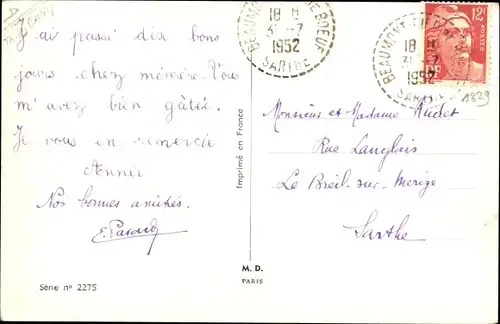 J'ai passé dix bons
jours chez mémère. Vous
m'avez bien gâtée.
Je vous en remercie
Annie
Nos bonnes amitiés.
Série nº 2275
Imprimé en France
M. D.
PARIS
18 H
31 -7
1952
SARTHE
BEAUMONT
18 H
31 -7
1952
12F
POSTES
1829
Monsieur et Madame
Rue Langlais
Le Breil-sur-Merize
Sarthe